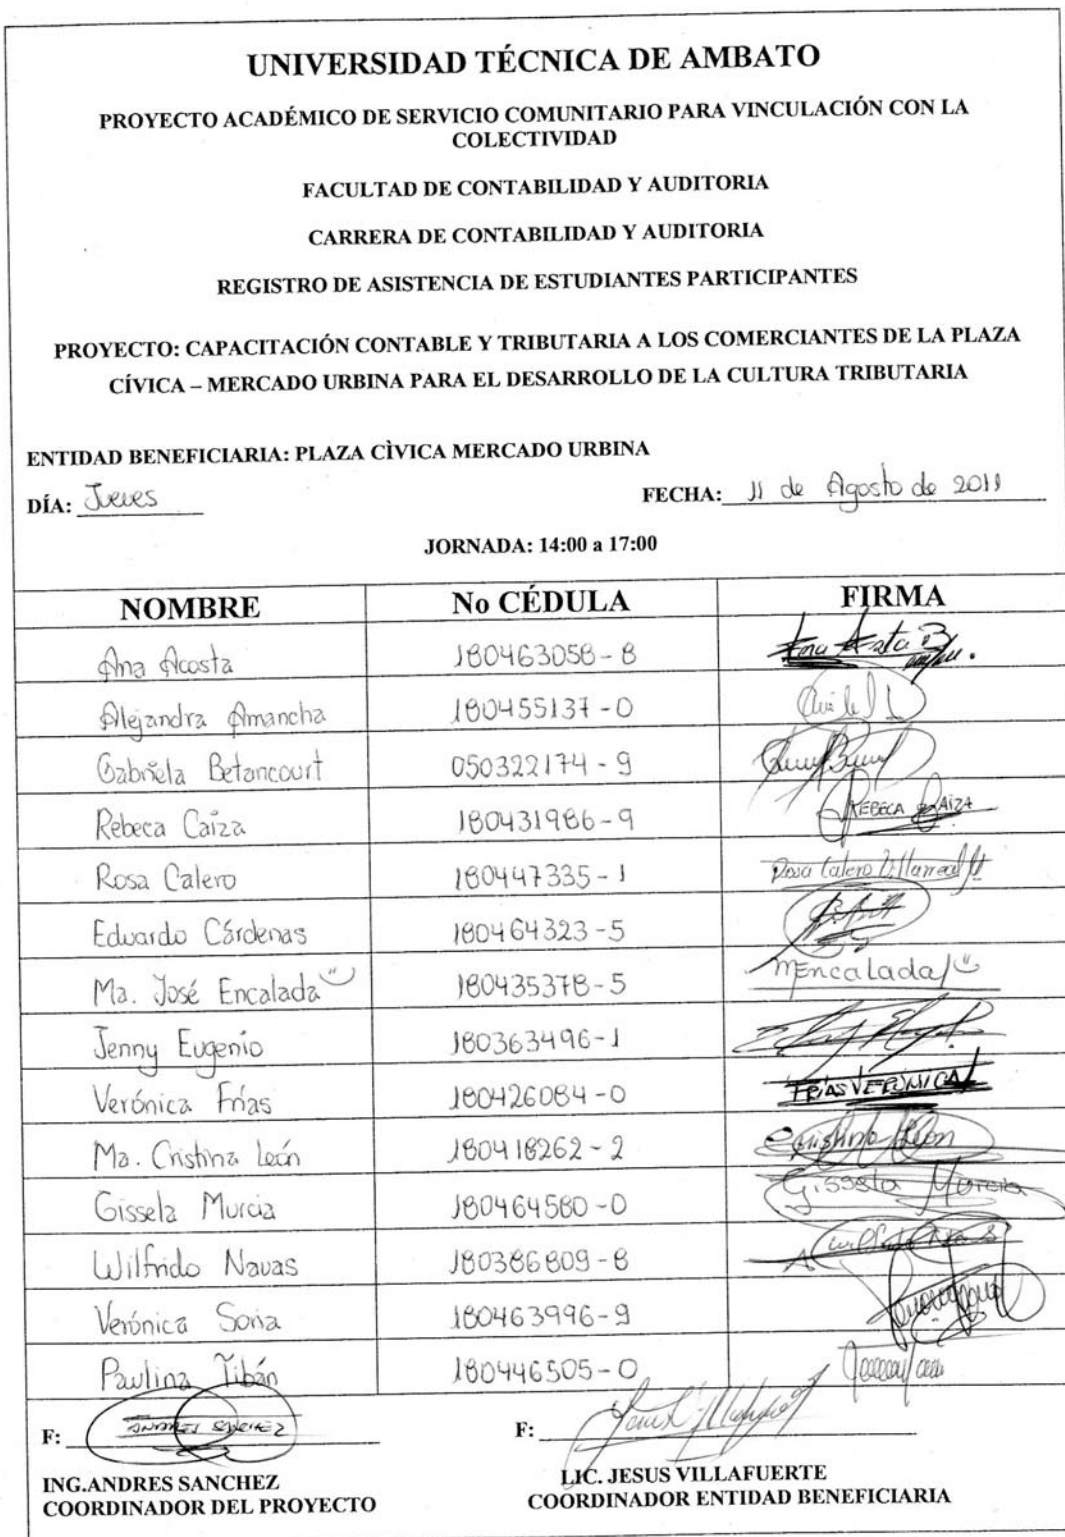 UNIVERSIDAD TÉCNICA DE AMBATO
PROYECTO ACADÉMICO DE SERVICIO COMUNITARIO PARA VINCULACIÓN CON LA
COLECTIVIDAD
FACULTAD DE CONTABILIDAD Y AUDITORIA
CARRERA DE CONTABILIDAD Y AUDITORIA
REGISTRO DE ASISTENCIA DE ESTUDIANTES PARTICIPANTES
PROYECTO: CAPACITACIÓN CONTABLE Y TRIBUTARIA A LOS COMERCIANTES DE LA PLAZA
CÍVICA – MERCADO URBINA PARA EL DESARROLLO DE LA CULTURA TRIBUTARIA
ENTIDAD BENEFICIARIA: PLAZA CÌVICA MERCADO URBINA
DÍA: Jueves FECHA: 11 de Agosto de 2011
JORNADA: 14:00 a 17:00
NOMBRE No CÉDULA FIRMA
Ana Acosta 180463058-8
Alejandra Amancha 180455137-0
Gabriela Betancourt 050322174-9
Rebeca Caiza 180431986-9 REBECA CAIZA
Rosa Calero 180447335-1 Rosa Calero Villarreal
Eduardo Cárdenas 180464323-5
Ma. José Encalada 180435378-5 MEncalada
Jenny Eugenio 180363496-1
Verónica Frías 180426084-0 FRIAS VERONICA
Ma. Cristina León 180418262-2 Cristina León
Gissela Murcia 180464580-0 Gissela Murcia
Wilfrido Navas 180386809-8
Verónica Soria 180463996-9
Paulina Tibán 180446505-0
F: ANDRES SANCHEZ F:
ING.ANDRES SANCHEZ LIC. JESUS VILLAFUERTE
COORDINADOR DEL PROYECTO COORDINADOR ENTIDAD BENEFICIARIA